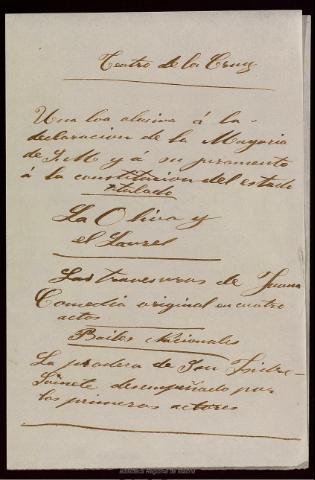 Teatro de la Cruz
Una loa alusiva á la
declaracion de la Mayoria
de S.M y á su juramento
á la constitucion del estado
titulado
La Oliva y
el Laurel
Las travesuras de Juana
Comedia original en cuatro
actos
Bailes Nacionales
La pradera de San Isidro
Sainete desempeñado por
los primeros actores
Biblioteca Regional de Madrid